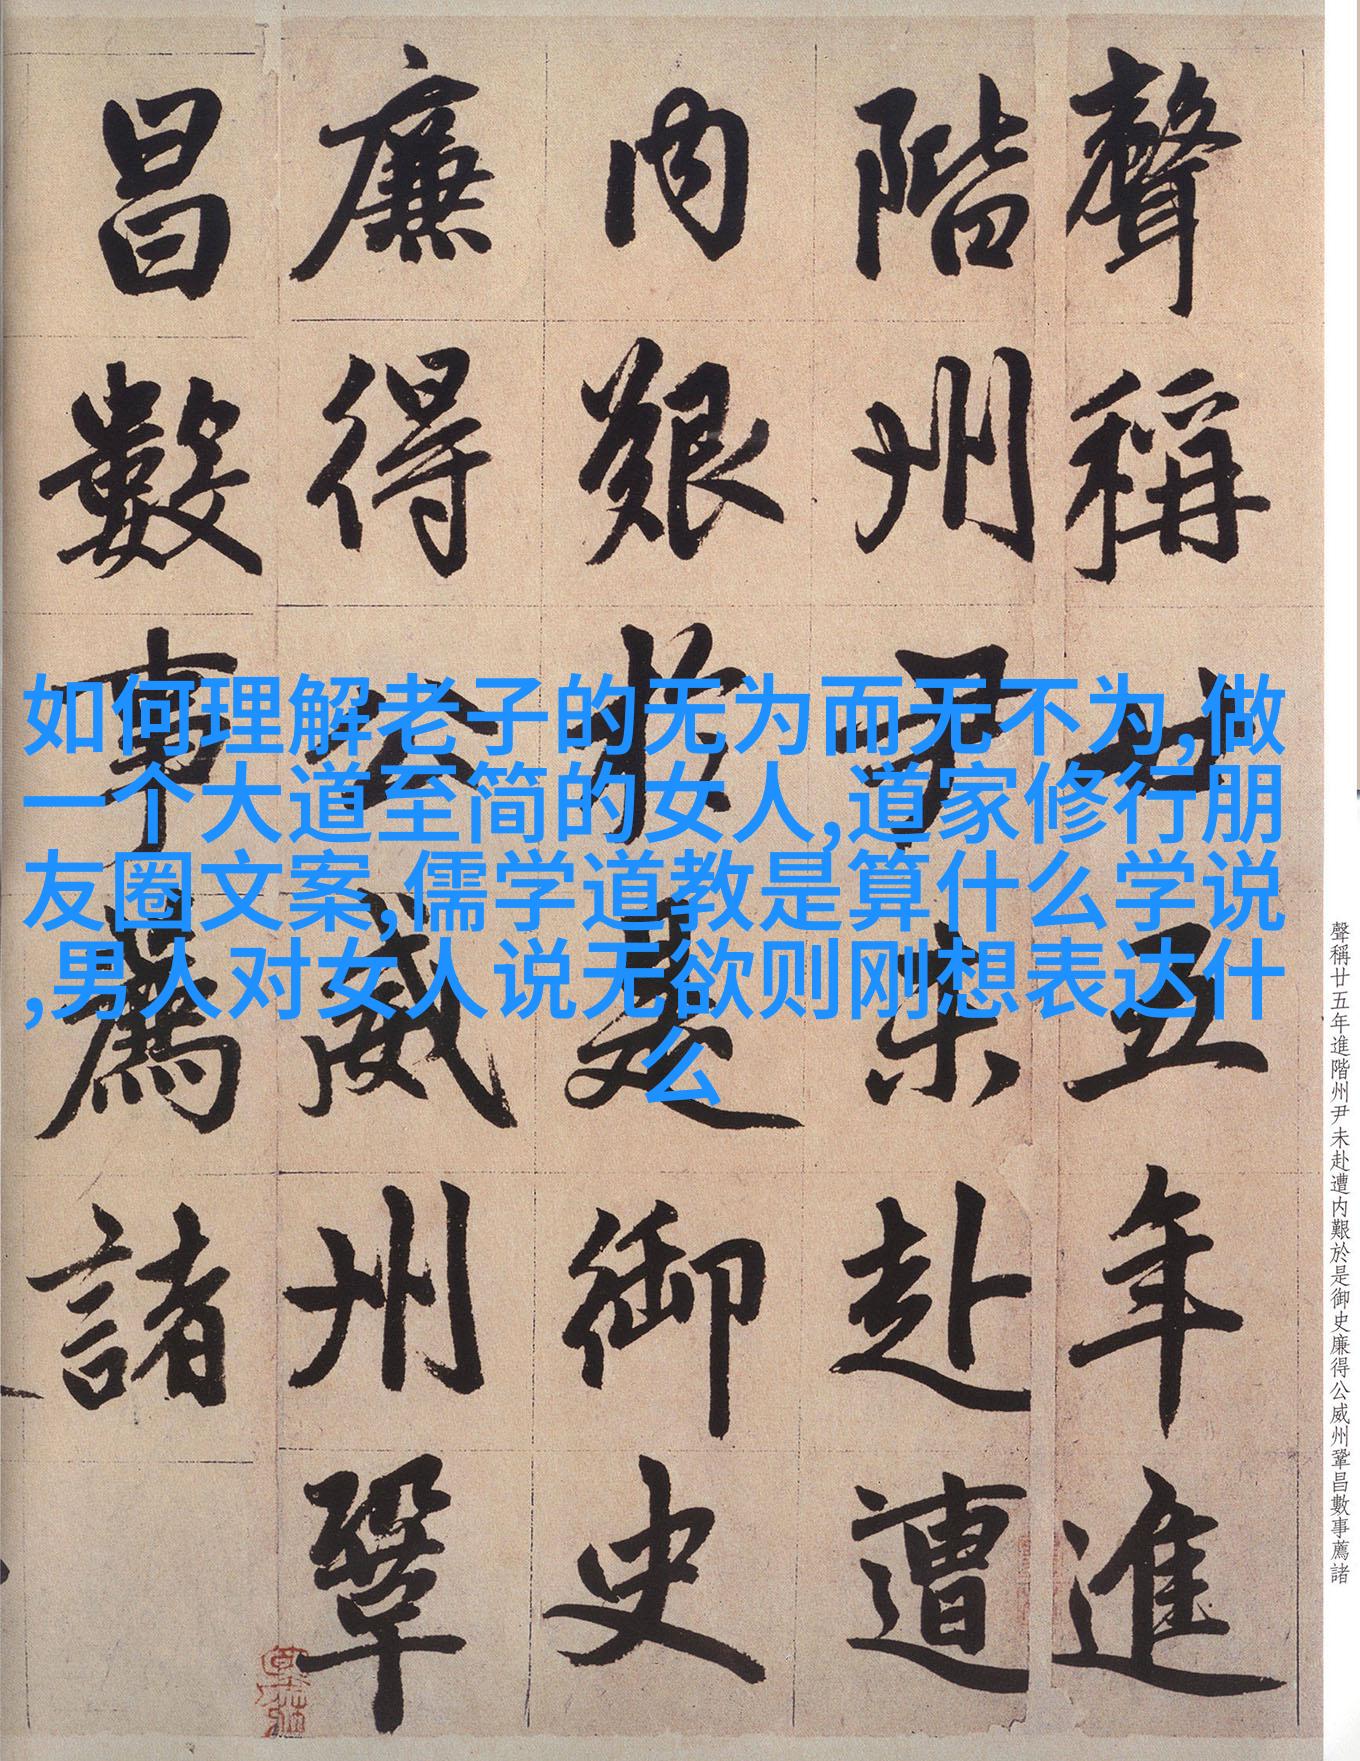 聲稱廿五年進
階州尹未赴遭
内艱於是御史
廉得公威州鞏
昌數事薦諸
如何理解老子的无为而无不为,做
一个大道至简的女人,道家修行朋
友圈文案,儒学道教是算什么学说
,男人对女人说无欲则刚想表达什
么
聲稱廿五年進階州尹未赴遭内艱於是御史廉得公威州鞏昌數事薦諸